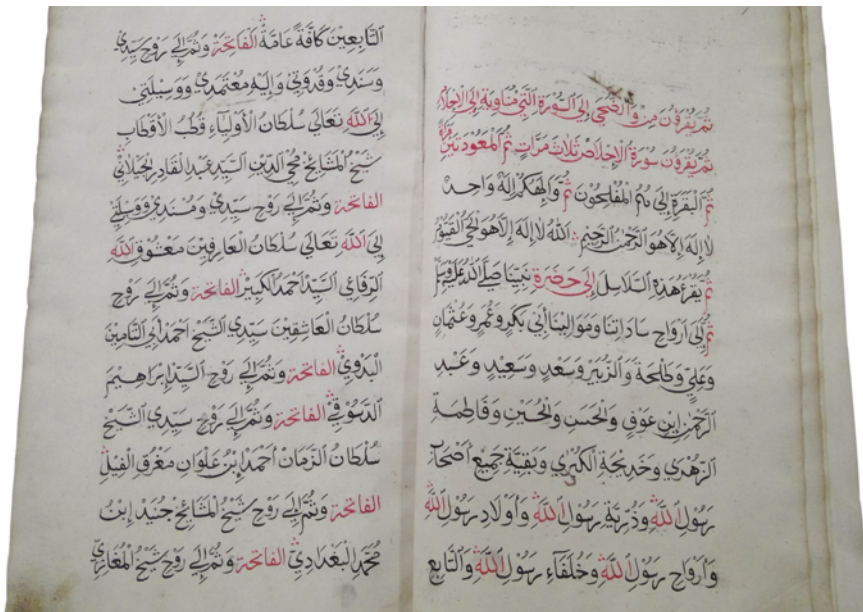 ثم يقرؤن من والضحى إلى السورة التي مناوبة إلى الإخلاص
ثم يقرؤن سورة الإخلاص ثلاث مرات ثم المعوذتين
ثم البقرة إلى هم المفلحون ثم وإلهكم إله واحد
لا إله إلا هو الرحمن الرحيم الله لا إله إلا هو الحي القيوم
ثم يقرء هذه السلاسل إلى حضرة نبينا صلى الله عليه وسلم
ثم إلى أرواح ساداتنا وموالينا أبي بكر وعمر وعثمان
وعلي وطلحة والزبير وسعد وسعيد وعبد
الرحمن ابن عوف والحسن والحسين وفاطمة
الزهدي وخديجة الكبرى وبقية جميع أصحاب
رسول الله وذرية رسول الله وأولاد رسول الله
وأرواح رسول الله وخلفاء رسول الله والتابع
التابعين كافة عامة الفاتحة وثم إلى روح سيدي
وسندي وقدوتي وإليه معتمدي ووسيلتي
إلى الله تعالى سلطان الأولياء قطب الأقطاب
شيخ المشايخ محي الدين السيد عبد القادر الجيلاني
الفاتحة وثم إلى روح سيدي ومسندي ووسيلتي
إلى الله تعالى سلطان العارفين معشوق الله
الرفاعي السيد أحمد الكبير الفاتحة وثم إلى روح
سلطان العاشقين سيدي الشيخ احمد أبي التامين
البدوي الفاتحة وثم إلى روح السيد إبراهيم
الدسوقي الفاتحة وثم إلى روح سيدي الشيخ
سلطان الزمان أحمد إبن علوان مغرق الفيل
الفاتحة وثم إلى روح شيخ المشايخ جنيد إبن
محمد البغدادي الفاتحة وثم إلى روح شيخ المغازي